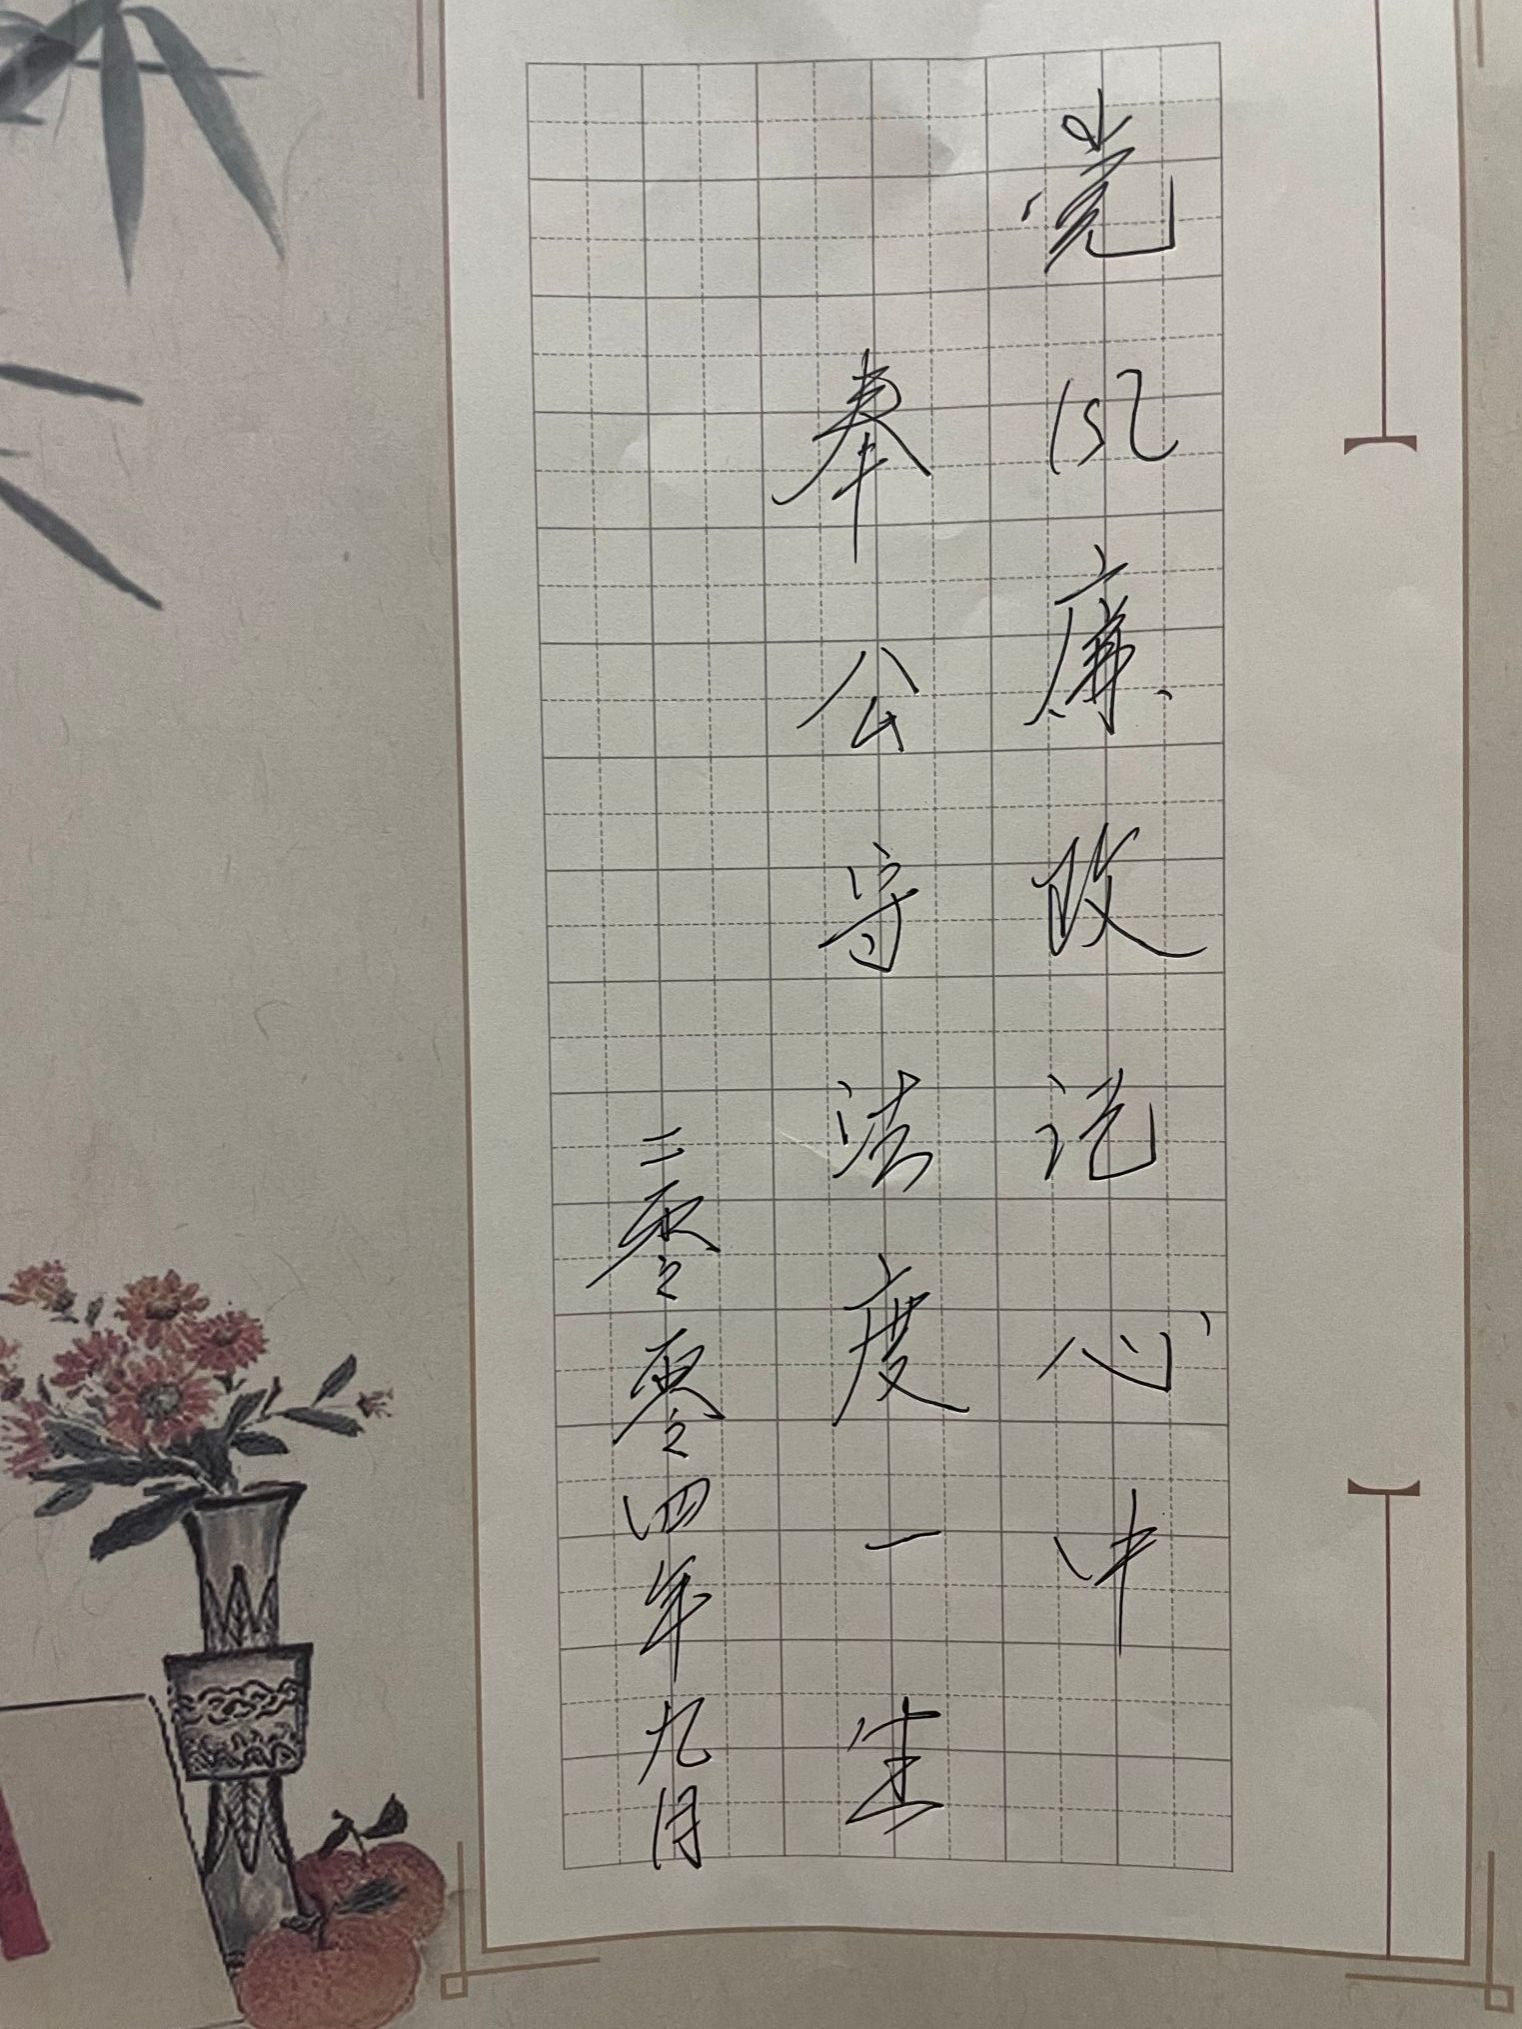 党风廉政记心中
奉公守法度一生
二零零四年九月